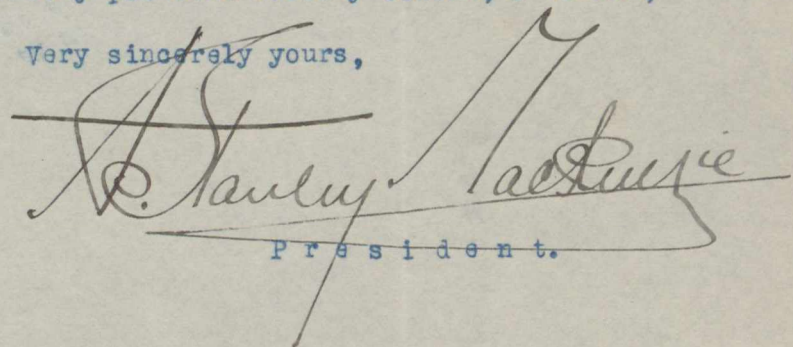 Very sincerely yours,
A. Stanley Mackenzie
President.